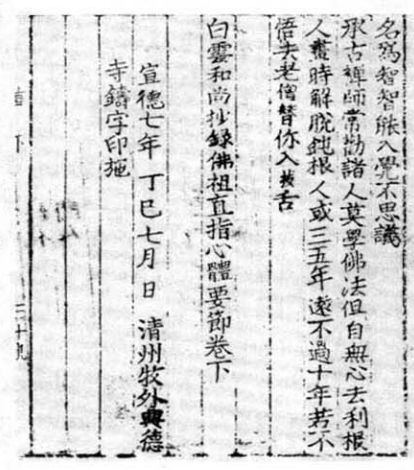 名爲智智眹入覺不思議
承古禪師常勸諸人莫學佛法但自無心去利根
人晝時解脫鈍根人或三五年遠不過十年若不
悟去老僧替你入拔舌
白雲和尚抄錄佛祖直指心體要節卷下
宣德七年 丁巳七月 日 清州牧外興德
寺鑄字印施